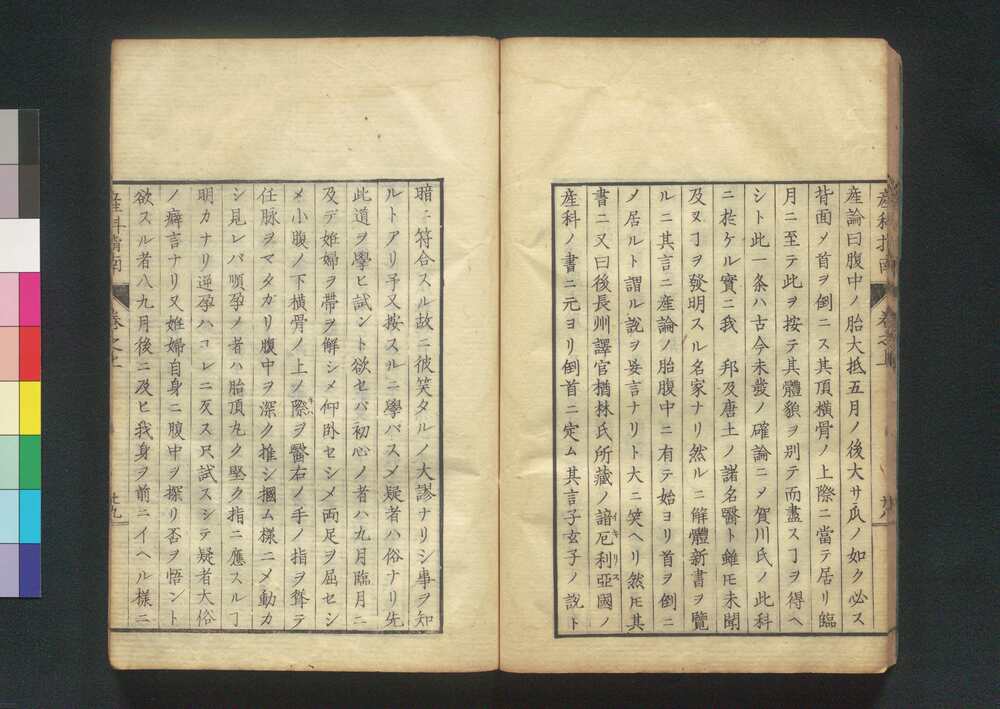 産科指南 巻之上
産論曰腹中ノ胎大抵五月ノ後大サ瓜ノ如ク必ス
背面メ首ヲ倒ニス其頂横骨ノ上際ニ當テ居リ臨
月ニ至テ此ヲ按テ其體貌ヲ別テ而盡スヿヲ得ヘ
シト此一条ハ古今未發ノ確論ニメ賀川氏ノ此科
ニ於ケル實ニ我 邦及唐土ノ諸名醫ト雖𪜈未聞
及ヌヿヲ發明スル名家ナリ然ルニ解體新書ヲ覽
ルニ其言ニ産論ノ胎腹中ニ有テ始ヨリ首ヲ倒ニ
ノ居ルト謂ル説ヲ妄言ナリト大ニ笑ヘリ然𪜈其
書ニ又曰後長州譯官楢林氏所藏ノ諳厄利亞國ノ
産科ノ書ニ元ヨリ倒首ニ定ム其言子玄子ノ説ト
暗ニ符合スル故ニ彼笑タルノ大謬ナリシ事ヲ知
ルトアリ予又按スルニ學バスメ疑者ハ俗ナリ先
此道ヲ學ヒ試ント欲セバ初心ノ者ハ九月臨月ニ
及デ姙婦ヲ帶ヲ解シメ仰卧セシメ両足ヲ屈セシ
メ小腹ノ下横骨ノ上ノ際ヲ醫右ノ手ノ指ヲ聳テ
任脉ヲマタガリ腹中ヲ深ク推シ摑ム樣ニメ動カ
シ見レバ順孕ノ者ハ胎頂丸ク堅ク指ニ應スルヿ
明カナリ逆孕ハコレニ反ス只試スシテ疑者大俗
ノ癖言ナリ又姙婦自身ニ腹中ヲ探リ否ヲ悟ント
欲スル者八九月後ニ及ヒ我身ヲ前ニイヘル樣ニ
産科指南 巻之上 廿九